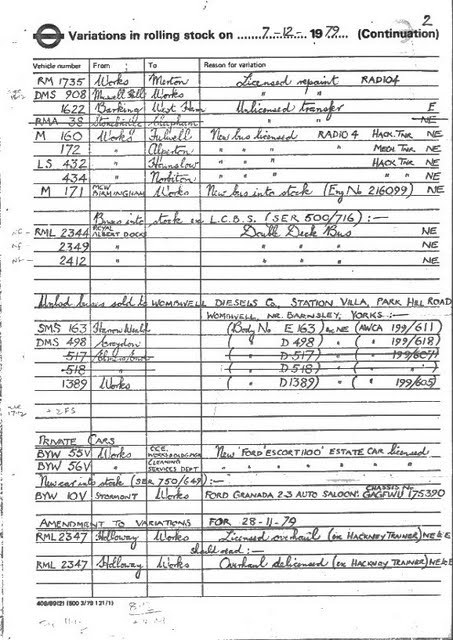 2
Variations in rolling stock on 7-12- 1979 (Continuation)
Vehicle number From To Reason for variation
RM 1735 Works Merton Licensed repaint RADIO4
DMS 908 Muswell Hill Works " "
1622 Barking West Ham Unlicensed transfer E
RMA 38 Stonebridge Clapham " " NE
M 160 Works Fulwell New bus licensed RADIO 4 HACK. TNR NE
172 " Alperton " " " MECH. TNR NE
LS 432 " Hounslow " " " HACK TNR NE
434 " Norbiton " " " " " NE
M 171 MCW BIRMINGHAM Works New bus into stock (Eng No 216099) NE
Buses into stock ex L.C.B.S. (SER 500/716) :-
RML 2344 ROYAL ALBERT DOCKS Double Deck Bus NE
2349 " " NE
2412 " " NE
buses sold to WOMBWELL DIESELS Co., STATION VILLA, PARK HILL ROAD
WOMBWELL, NR. BARNSLEY, YORKS :-
SMS 163 Harrow Weald (Body No E 163) NE (AWCA 199/611)
DMS 498 Croydon ( " D 498) " ( " 199/618)
517 ( " D 517) " ( " 199/607)
518 " ( " D 518) " ( " " )
1389 Works ( " D1389) " ( " 199/605)
+2FS
PRIVATE CARS
BYW 55V Works C.C.E. WORKS BLDG MGR New 'FORD' ESCORT 1100' ESTATE CAR licensed
BYW 56V " CLEANING SERVICES DEPT " " " " " "
New car into stock (SER 750/649) :-
BYW 10V STORMONT Works FORD GRANADA 2.3 AUTO SALOON. CHASSIS No GAGFWU 175390
AMENDMENT TO VARIATIONS FOR 28-11-79
RML 2347 Holloway Works Licensed overhaul (ex HACKNEY TRAINER) NE & E
should read :-
RML 2347 Holloway Works Overhaul delicensed (ex HACKNEY TRAINER) NE & E